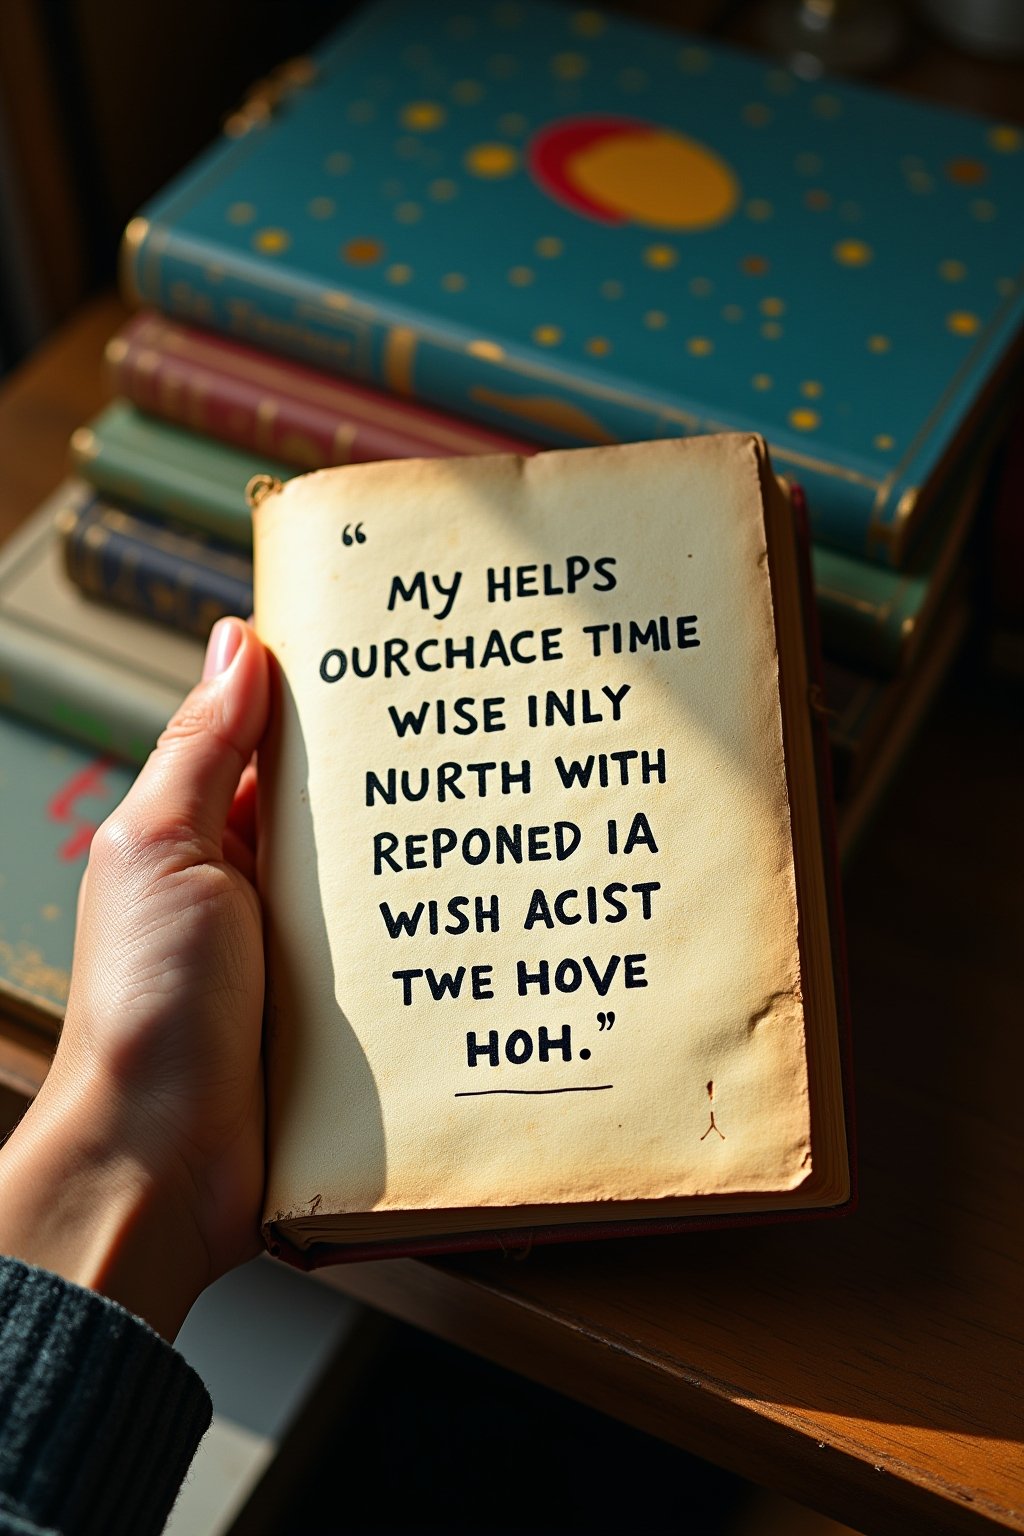 “
MY HELPS
OURCHACE TIMIE
WISE INLY
NURTH WITH
REPONED IA
WISH ACIST
TWE HOVE
HOH.”